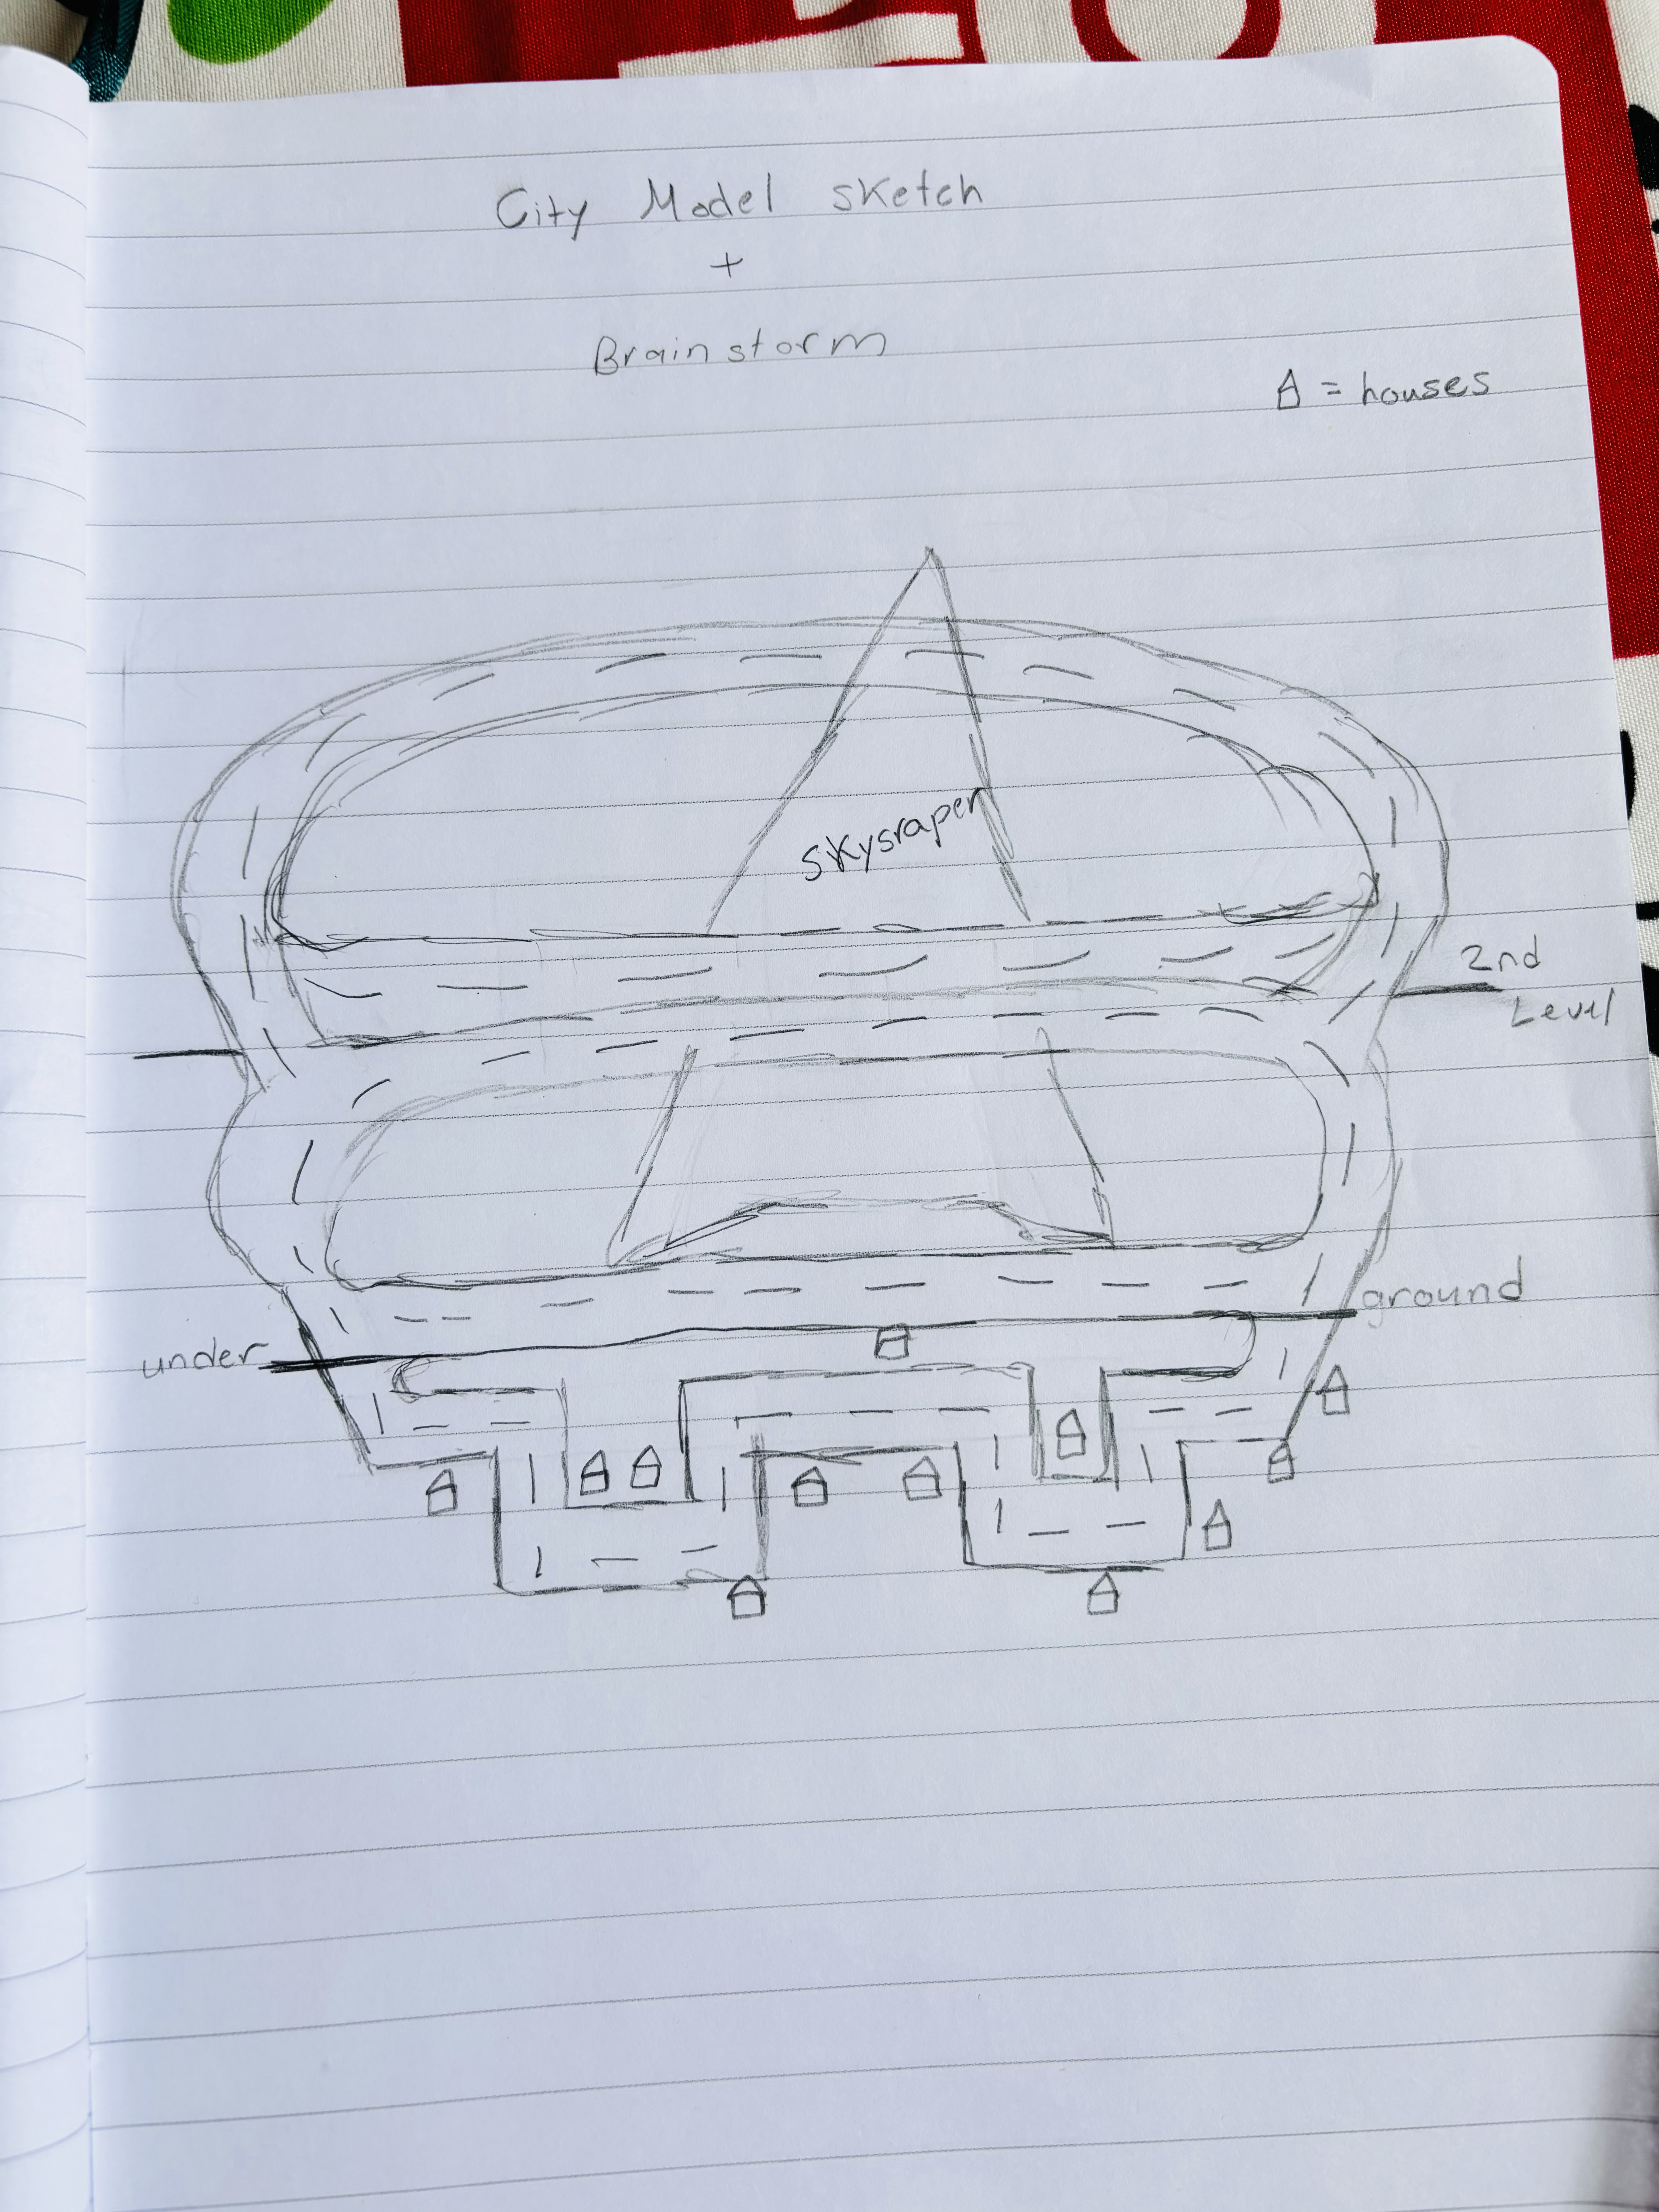 City Model sketch
+
Brainstorm
= houses
skysraper
2nd
Level
ground
under